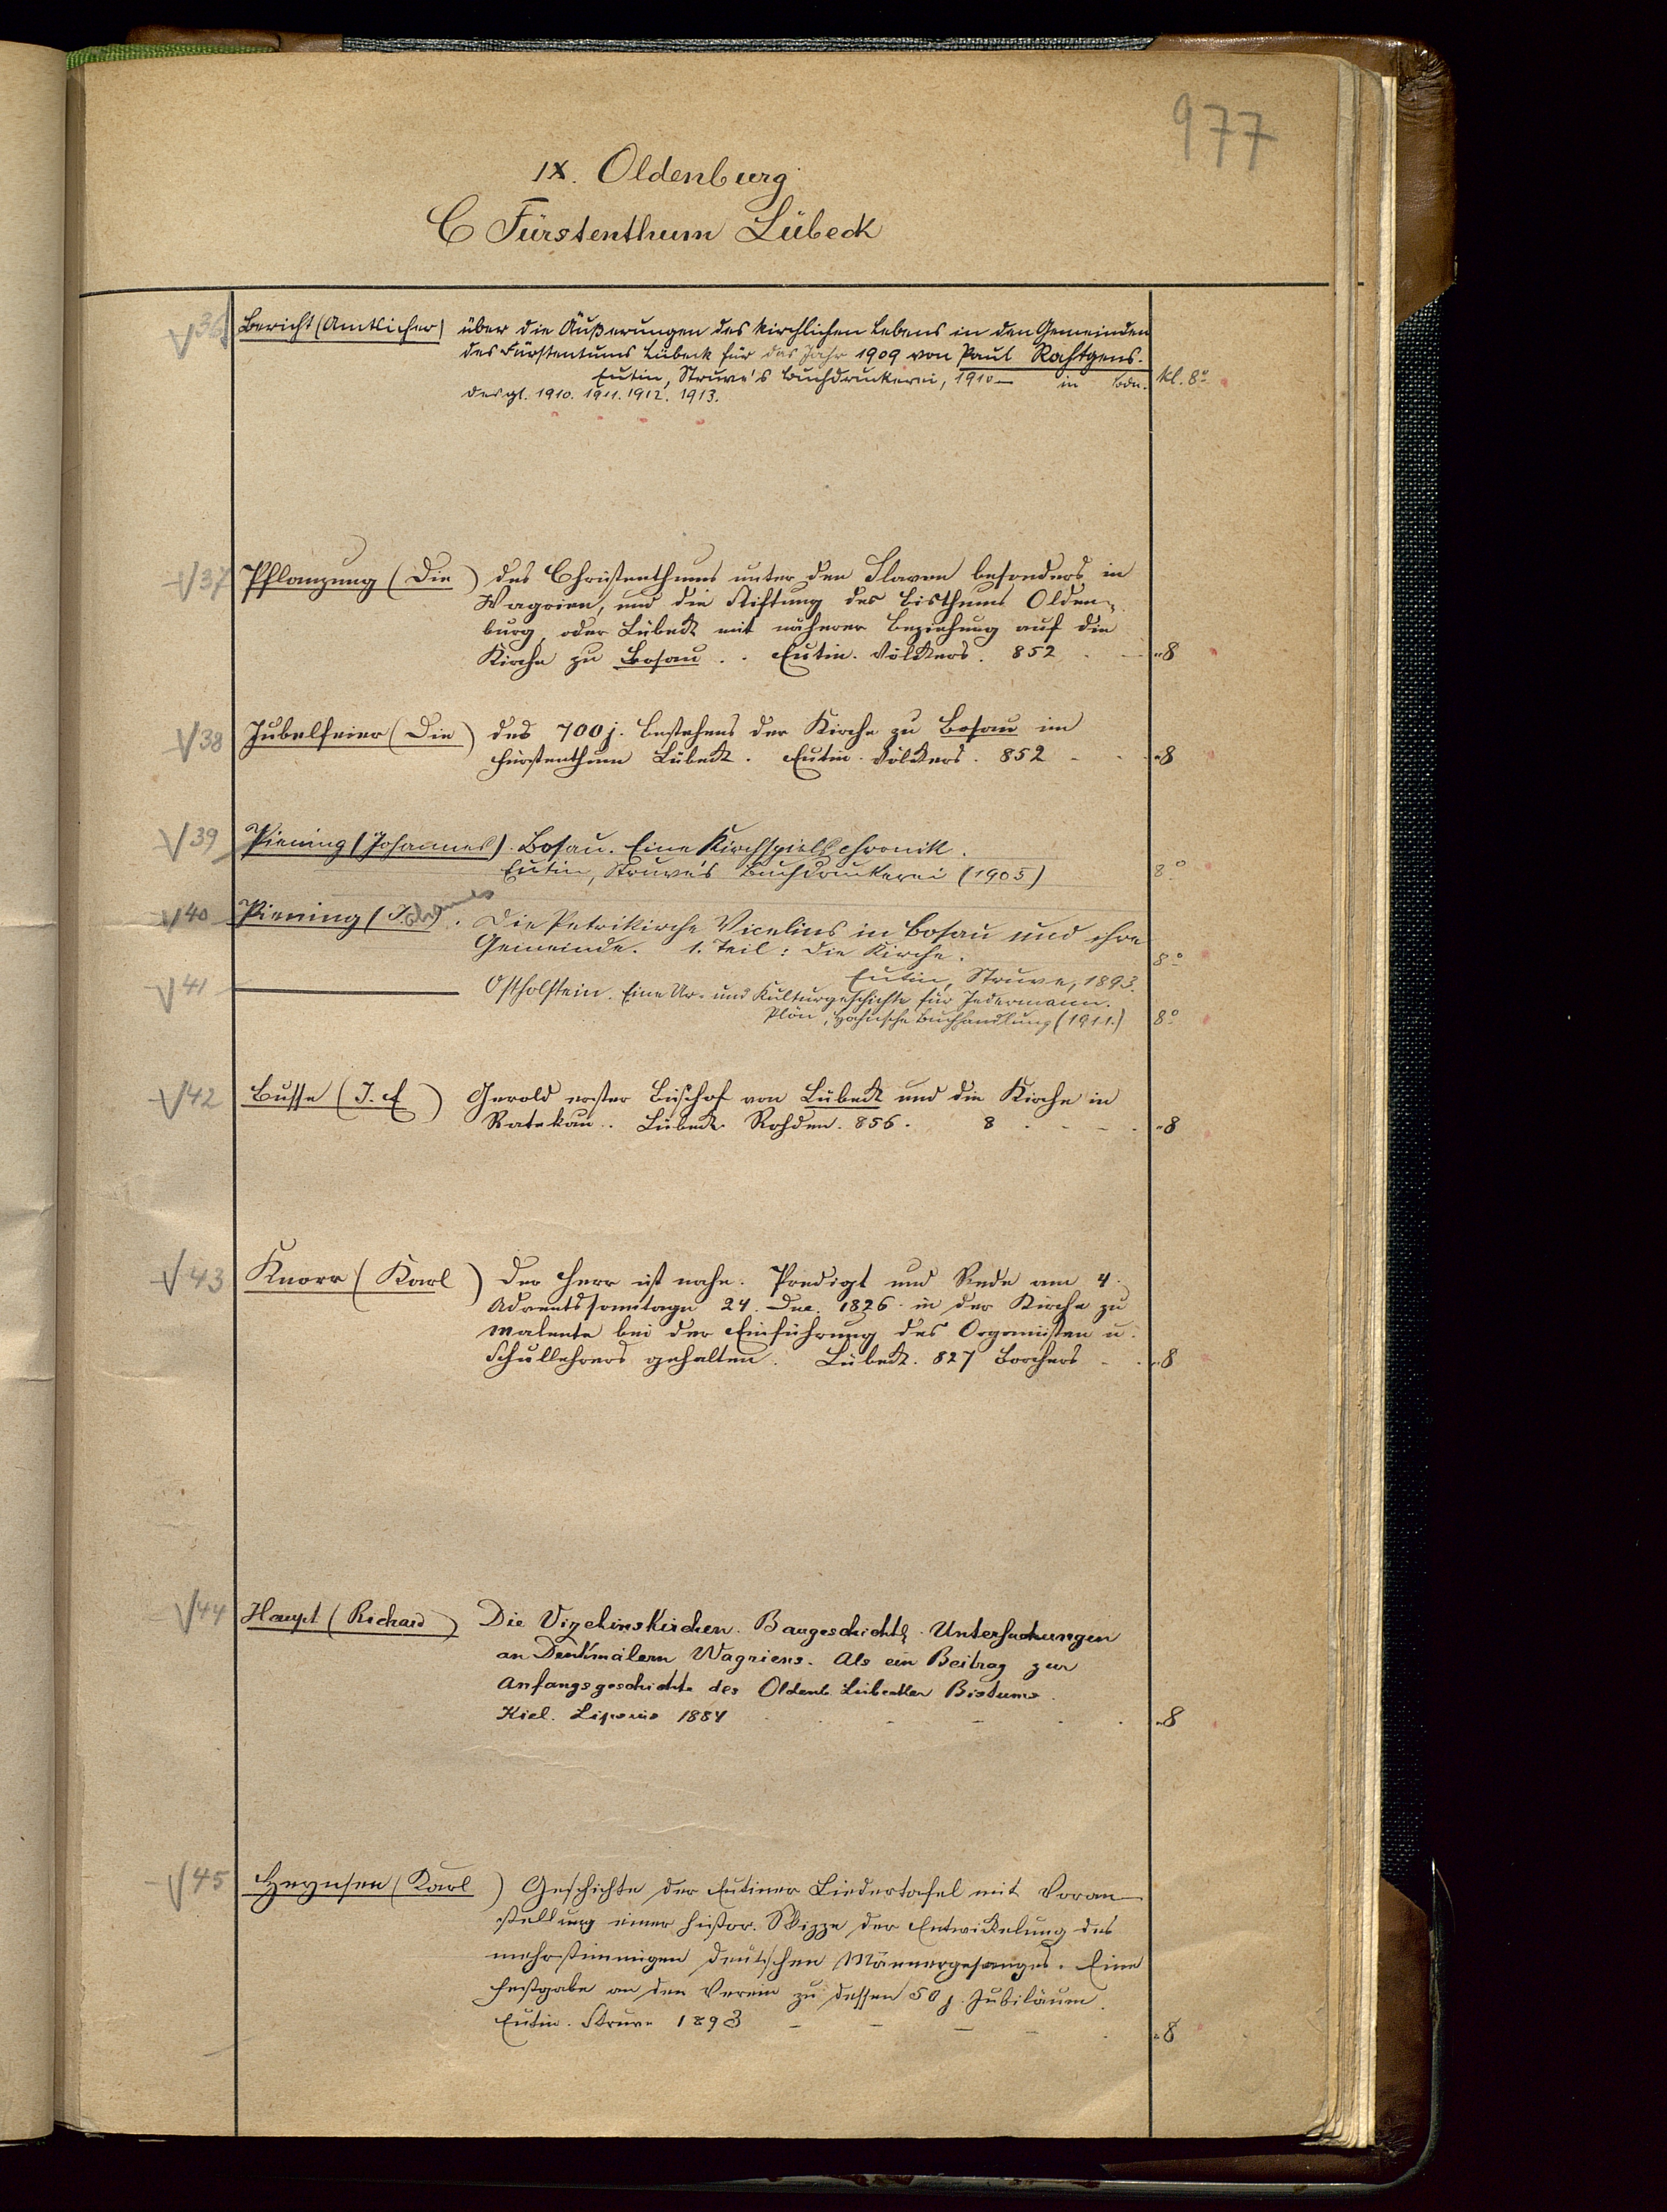 977
IX. Oldenburg
C Fürstenthum Lübeck
V 36 Bericht (Amtlicher) über die Äußerungen des kirchlichen Lebens in den Gemeinden
des Fürstentums Lübeck für das Jahr 1909 von Paul Rahtgens.
Eutin, Struve's Buchdruckerei, 1910— in Bdn. kl. 8º
desgl. 1910. 1911. 1912. 1913.
V 37 Pflanzung (Die) des Christenthums unter den Slaven besonders in
Wagrien, und die Stiftung des Bisthums Olden-
burg, oder Lübeck mit näherer Beziehung auf die
Kirche zu Bosau. . Eutin. Völckers. 852 - - " 8
V 38 Jubelfeier (Die) des 700 j. Bestehens der Kirche zu Bosau im
Fürstenthum Lübeck. Eutin. Völckers. 852 - - " 8
V 39 Piening (Johannes). Bosau. Eine Kirchspielschronik.
Eutin, Struve's Buchdruckerei (1905) 8º
V 40 Piening (Johannes). Die Petrikirche Vicelins in Bosau und ihre
Gemeinde. 1. Teil: Die Kirche. 8º
Eutin, Struve, 1893.
V 41 — Ostholstein. Eine Ur- und Kulturgeschichte für Jedermann.
Plön, Hahnsche Buchhandlung (1911.) 8º
V 42 Busse (J. E) Gerold erster Bischof von Lübeck und die Kirche in
Ratekau. . Lübeck Rohden. 856. 8 - - - " 8
V 43 Knorr (Karl) Der Herr ist nahe. Predigt und Rede am 4.
Adventssonntage 24. Dec. 1826 in der Kirche zu
Malente bei der Einführung des Organisten u.
Schullehrers gehalten. Lübeck. 827 Borchers - - " 8
V 44 Haupt (Richard) Die Vizelinskirchen. Baugeschichtl. Untersuchungen
an Denkmälern Wagriens. Als ein Beitrag zur
Anfangsgeschichte des Oldenb. Lübecker Bistums.
Kiel. Lipsius 1884 - - - " 8
V 45 Heynsen (Karl) Geschichte der Eutiner Liedertafel mit Voran-
stellung einer histor. Skizze der Entwickelung des
mehrstimmigen deutschen Männergesanges. Eine
Festgabe an den Verein zu dessen 50 j. Jubiläum.
Eutin. Struve 1893 - - - - " 8